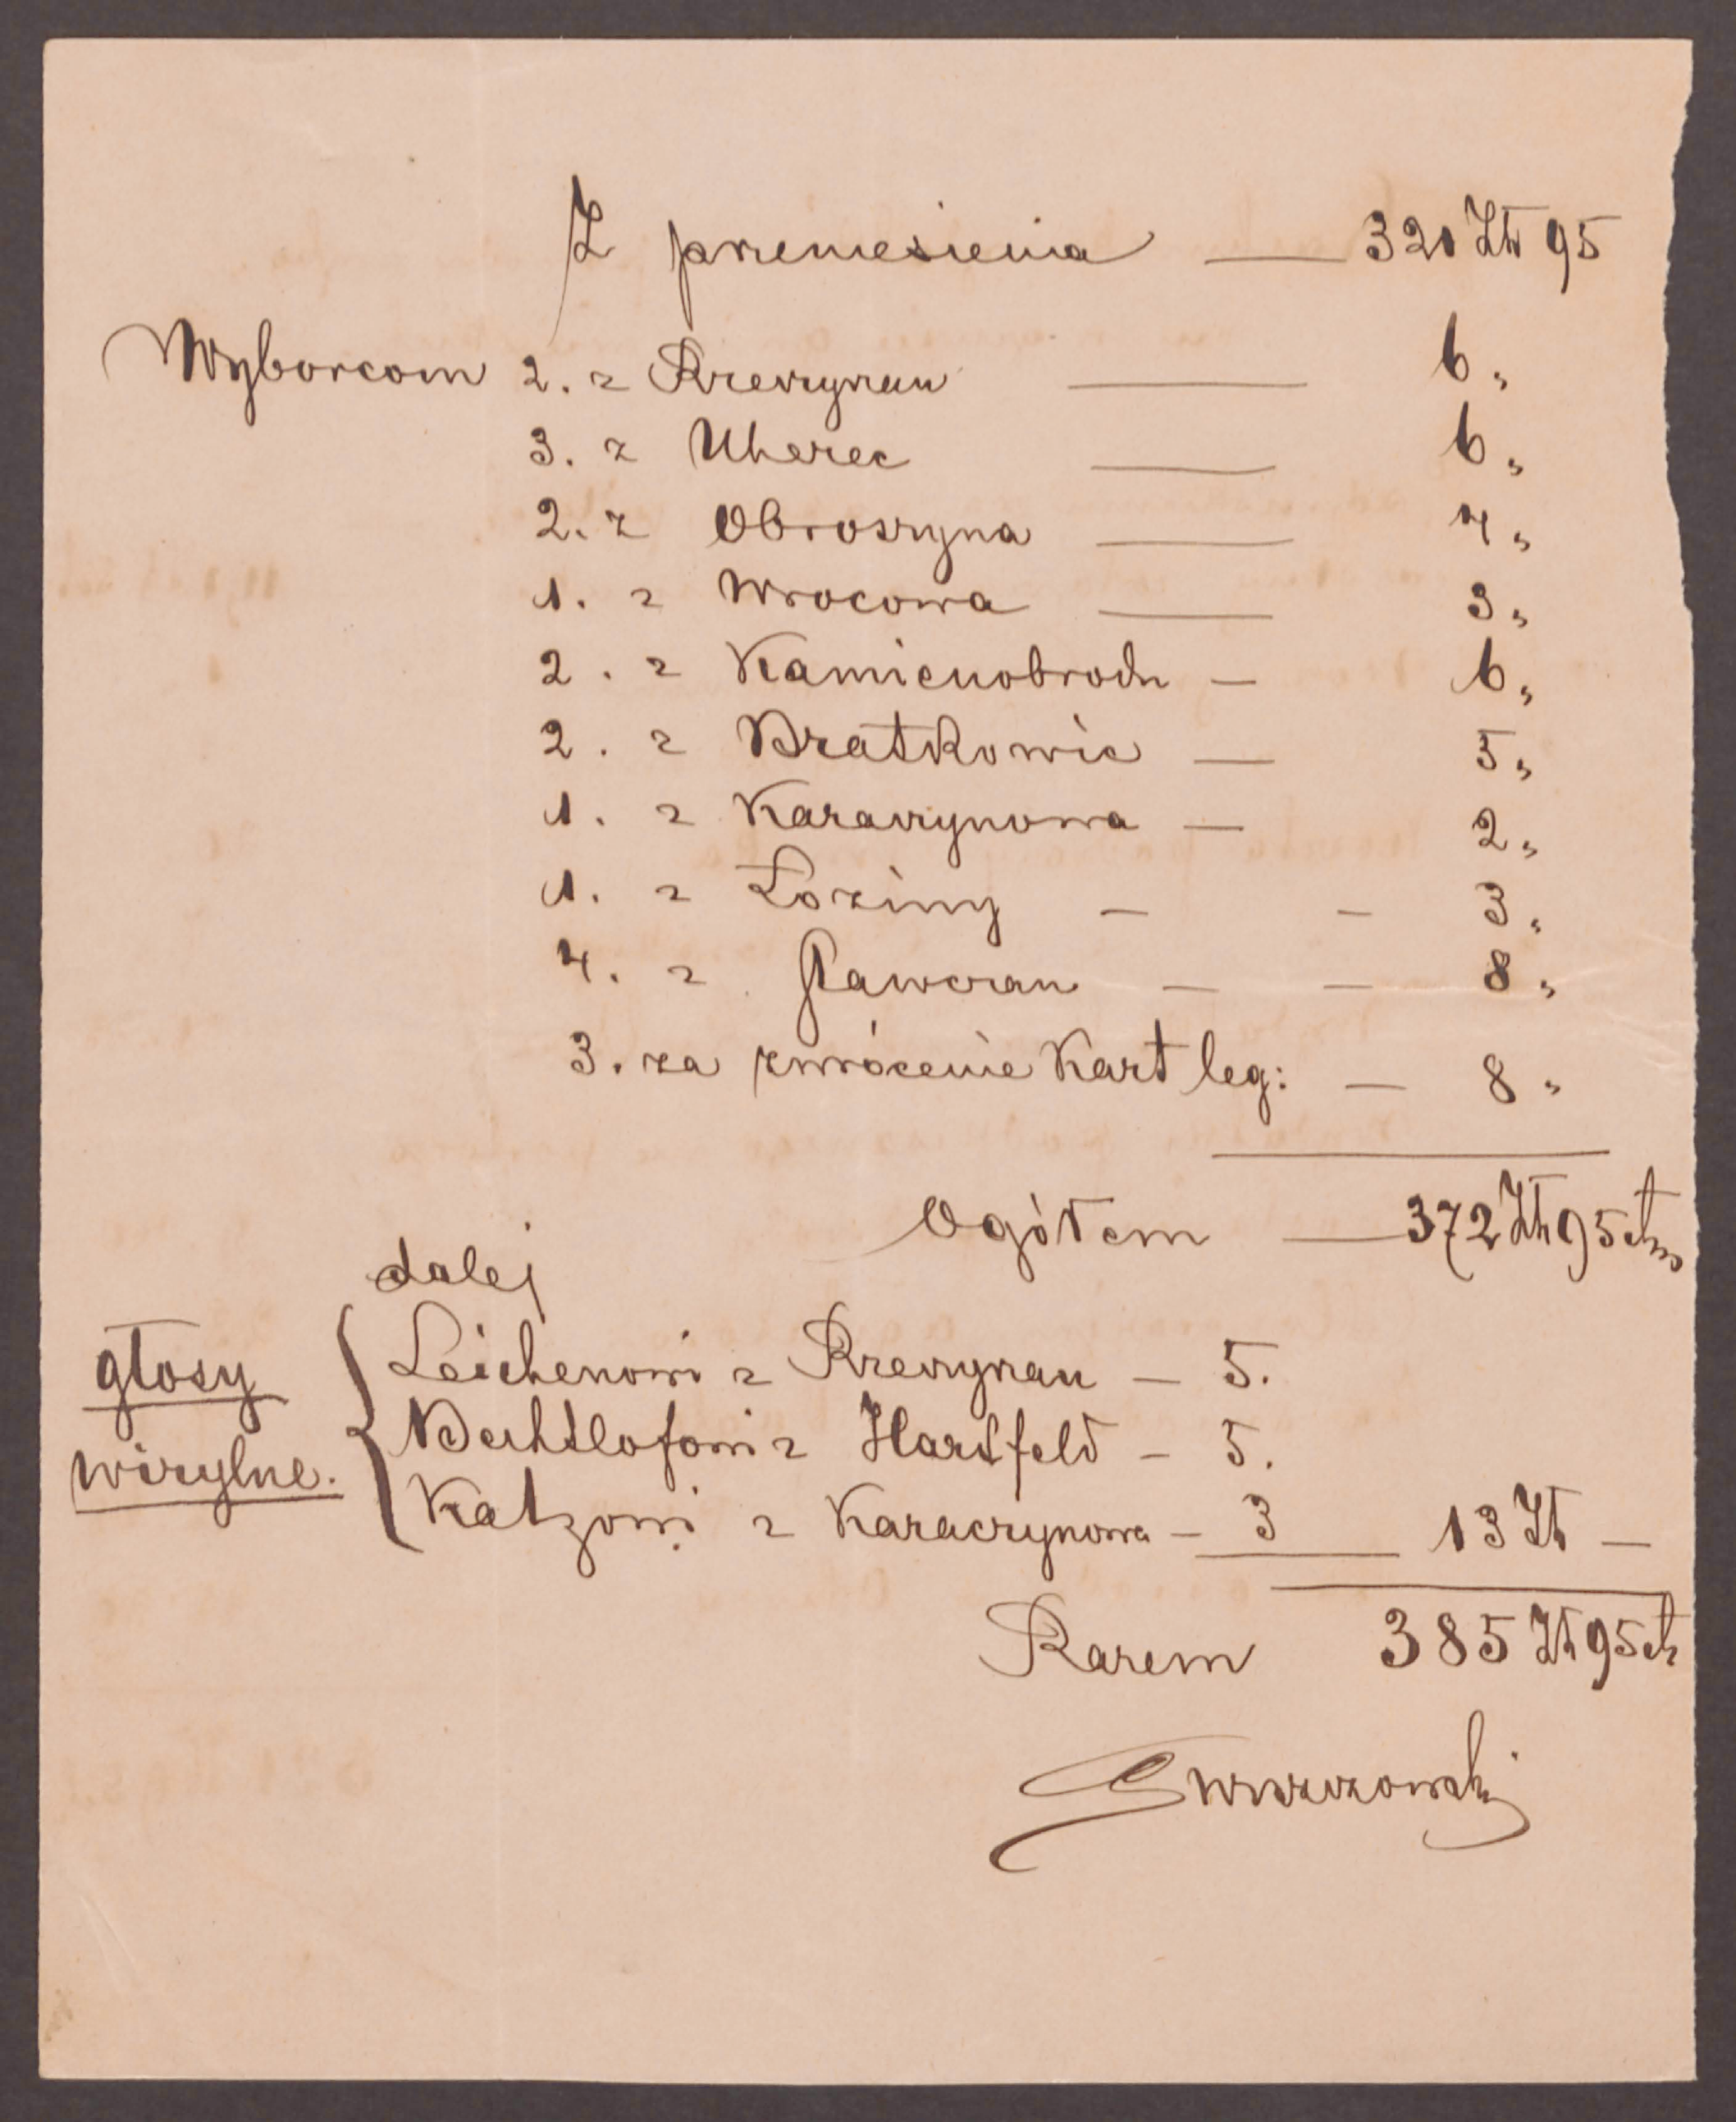 Z przeniesienia — 321 Zł 95
Wyborcom 2. z Rzeczyczan — 6 „
3. z Uherec — 6 „
2. z Obroszyna — 4 „
1. z Wrocowa — 3 „
2. z Kamienobrodu — 6 „
2. z Bratkowic — 5 „
1. z Karaczynowa — 2 „
1. z Łoziny — — 3 „
4. z Stawczan — — 8 „
3. za zwrócenie Kart leg: — 8 „
Ogółem — 372 Zł 95 ct
dalej
głosy wirylne.
Leichenowi z Rzeczyczan — 5.
Bechtlofowi z Hartfeld — 5.
Katzowi z Karaczynowa — 3 — 13 Zł —
Razem 385 Zł 95 ct